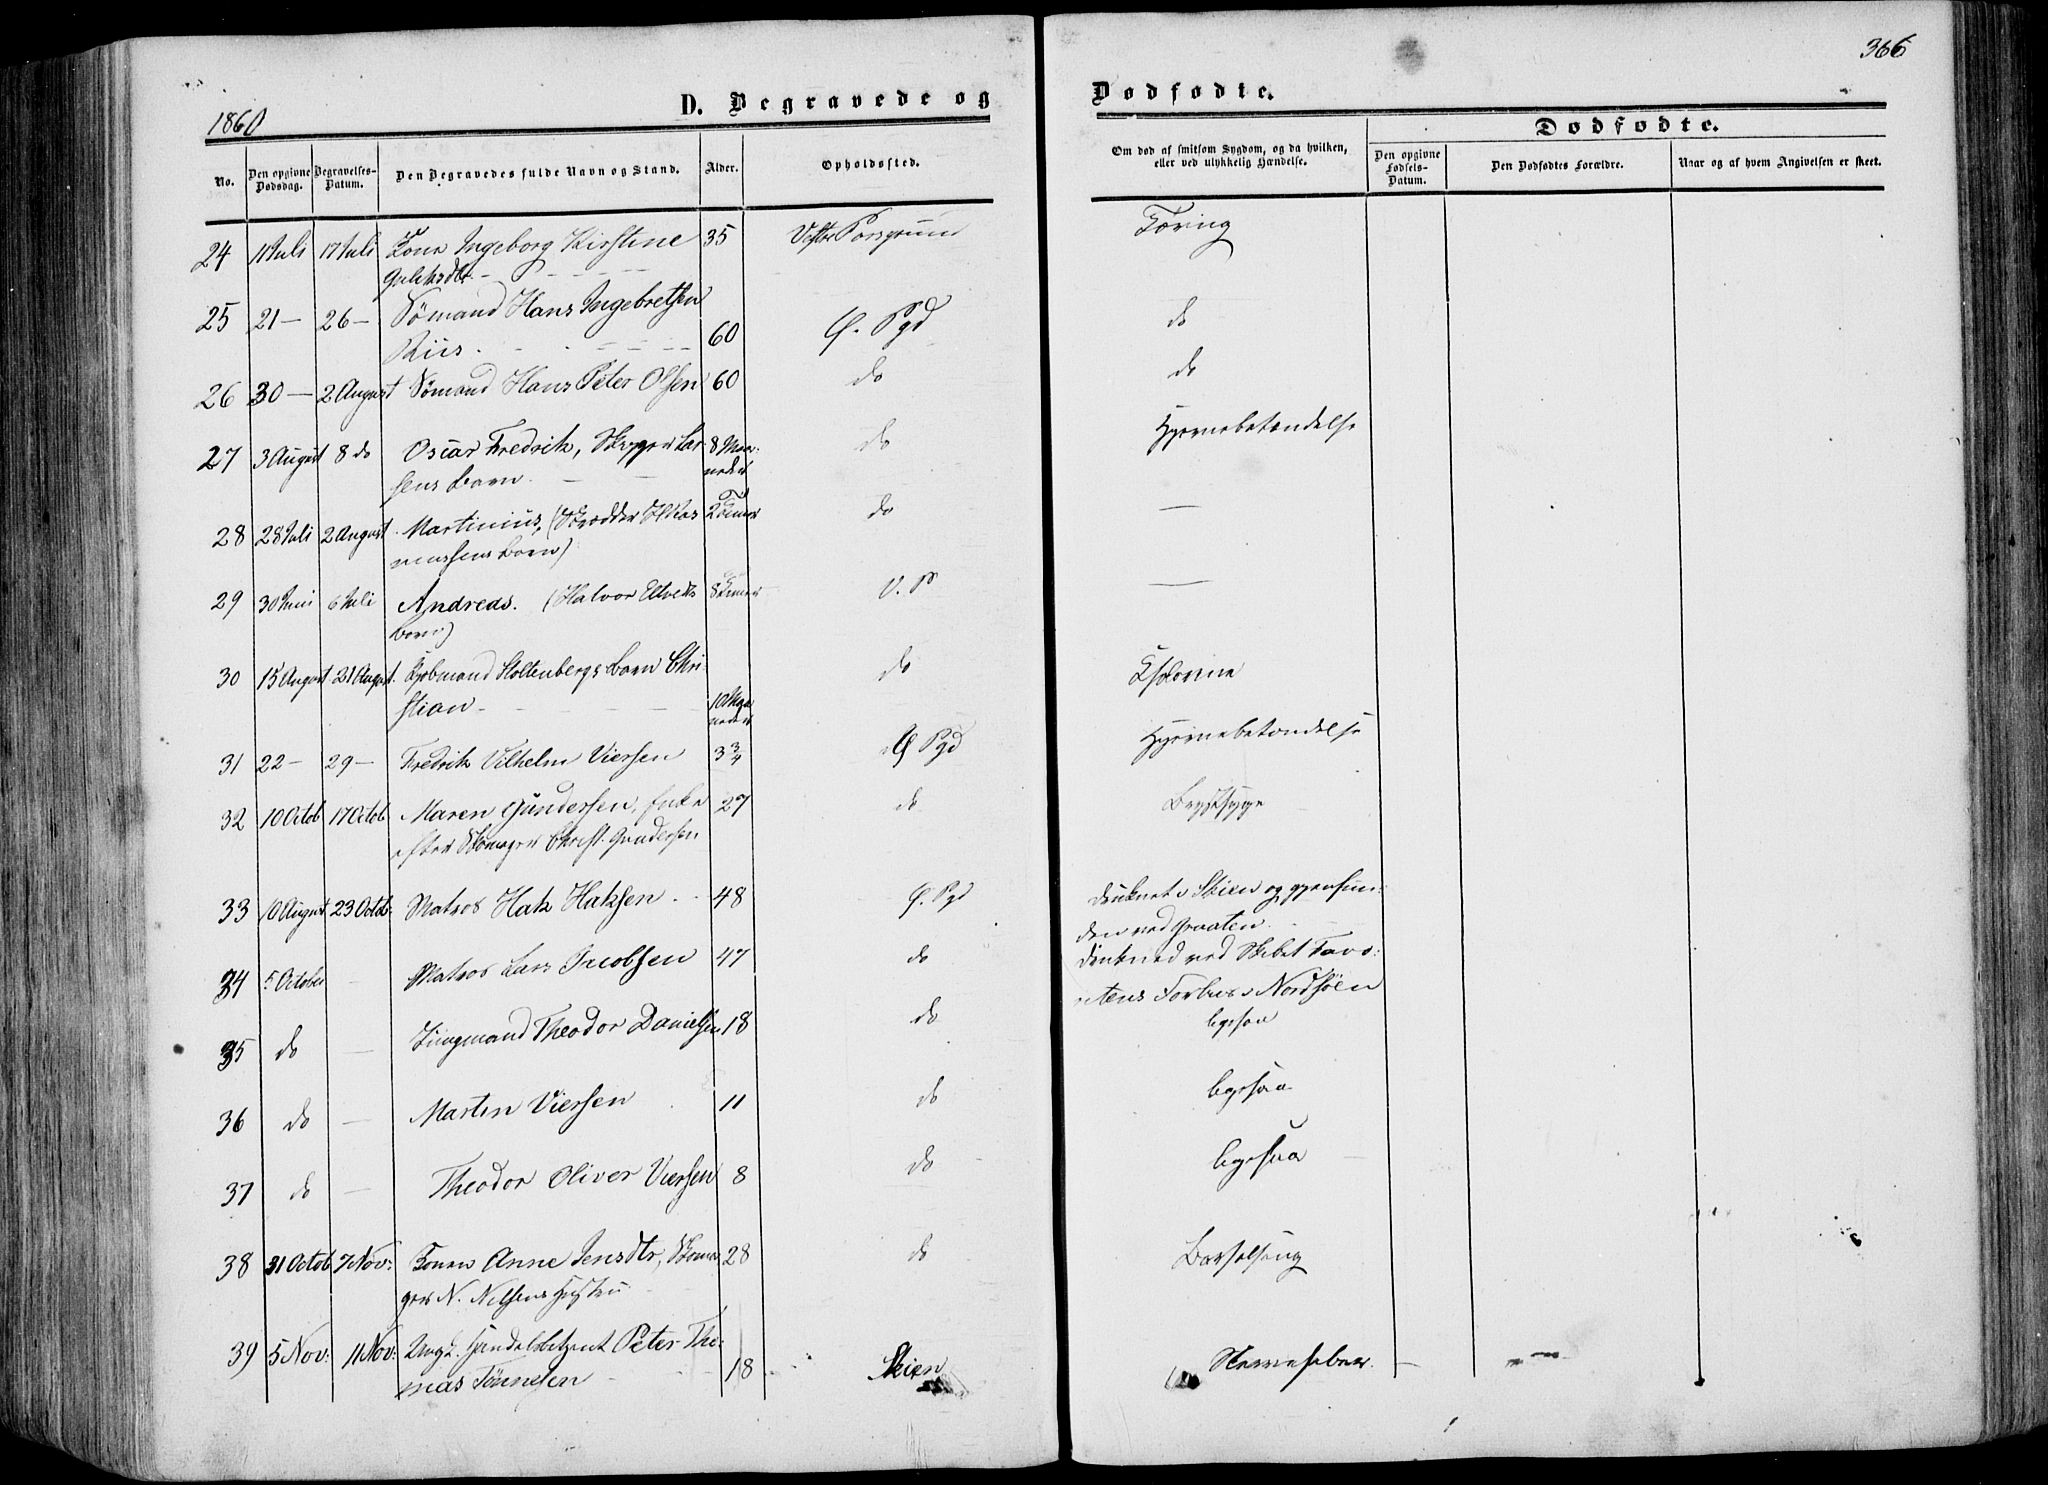 366
1860
D. Begravede og Dødfødte.
No.
Den opgivne Dødsdag.
Begravelses-Datum.
Den Begravedes fulde Navn og Stand.
Alder.
Opholdssted.
Om død af smitsom Sygdom, og da hvilken, eller ved ulykkelig Hændelse.
Dødfødte.
Den opgivne Fødsels-Datum.
Den Dødfødtes Forældre.
Naar og af hvem Angivelsen er skeet.
24 11 Juli 17 Juli Kone Ingeborg Kirstine 35 Vestre Porsgrund Tæring
25 21 — 26 — Sømand Hans Ingebretsen
Riis 60 Ø. Pgd do
26 30 — 2 August Sømand Hans Peter Olsen 60 do do
27 3 August 8 do Oscar Fredrik, Skipper Lar- 8 Maa- do Hjernebetændelse
sens Barn neder
28 28 Juli 2 August Martinius, (Skrædder 2 Timer do —
Barn)
29 30 Juni 6 Juli Andreas. (Halvor 8 V. P —
Barn)
30 15 August 21 August. Kjøbmand Stoltenbergs Barn Chri- do
stian 10 Maa-
neder
31 22 — 29 — Fredrik Vilhelm Viersen 3 3/4 Ø Pgd Hjernebetændelse
32 10 Octob 17 Octob Maren Gundersen, Enke 27 do Brystsyge
efter Skomager Christ. Gundersen
33 10 August 23 Octob. Matros Hak Haksen 48 Ø. Pgd druknet i Skien og gjenfun-
den ved Graaten.
34 5 October — Matros Lars Jacobsen 47 do drukned ved Skibet Favo-
ritens Forliis i Nordsøen
35 do — Jungmand Theodor Danielsen 18 do ligesaa
36 do — Marten Viersen 11 do ligesaa
37 do — Theodor Oliver Viersen 8 do ligesaa
38 31 Octob 7 Nov: Konen Anne Jensdtr, Skoma- 28 do Barselseng
ger N. Nilsens Hustru
39 5 Nov: 11 Nov: Ungk. Handelsbetjent Peter Tho-
mas Tønnesen 18 Skien Nervefeber.